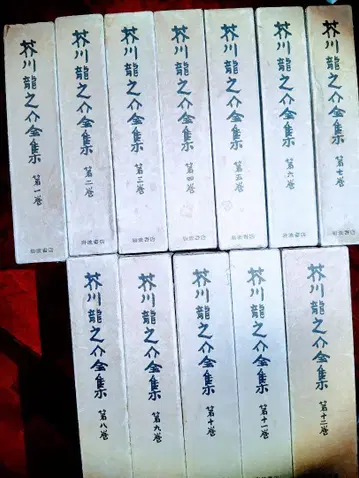 芥川龍之介全集 第一巻
芥川龍之介全集 第二巻
芥川龍之介全集 第三巻
芥川龍之介全集 第四巻
芥川龍之介全集 第五巻
芥川龍之介全集 第六巻
芥川龍之介全集 第七巻
芥川龍之介全集 第八巻
芥川龍之介全集 第九巻
芥川龍之介全集 第十巻
芥川龍之介全集 第十一巻
芥川龍之介全集 第十二巻